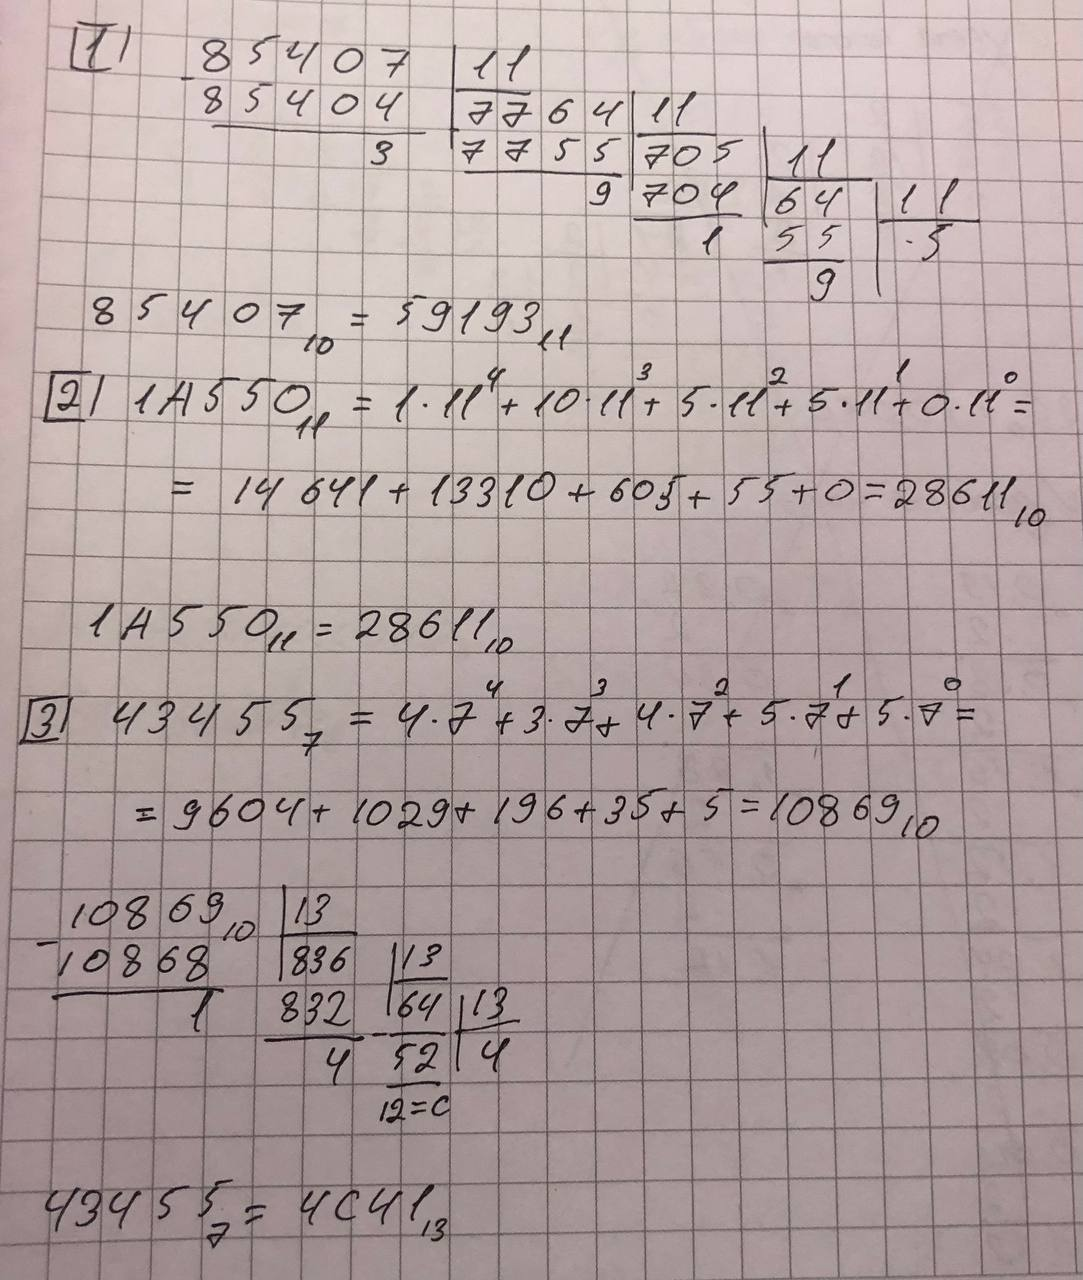 1
85407 | 11
- 85404 | 7764 | 11
3 | 7755 | 705 | 11
9 | 704 | 64 | 11
1 | 55 | 5
9
85407₁₀ = 59193₁₁
2 1A550₁₁ = 1·11⁴ + 10·11³ + 5·11² + 5·11¹ + 0·11⁰ =
= 14641 + 13310 + 605 + 55 + 0 = 28611₁₀
1A550₁₁ = 28611₁₀
3 43455₇ = 4·7⁴ + 3·7³ + 4·7² + 5·7¹ + 5·7⁰ =
= 9604 + 1029 + 196 + 35 + 5 = 10869₁₀
10869₁₀ | 13
- 10868 | 836 | 13
1 | 832 | 64 | 13
4 - 52 | 4
12=C
43455₇ = 4C41₁₃